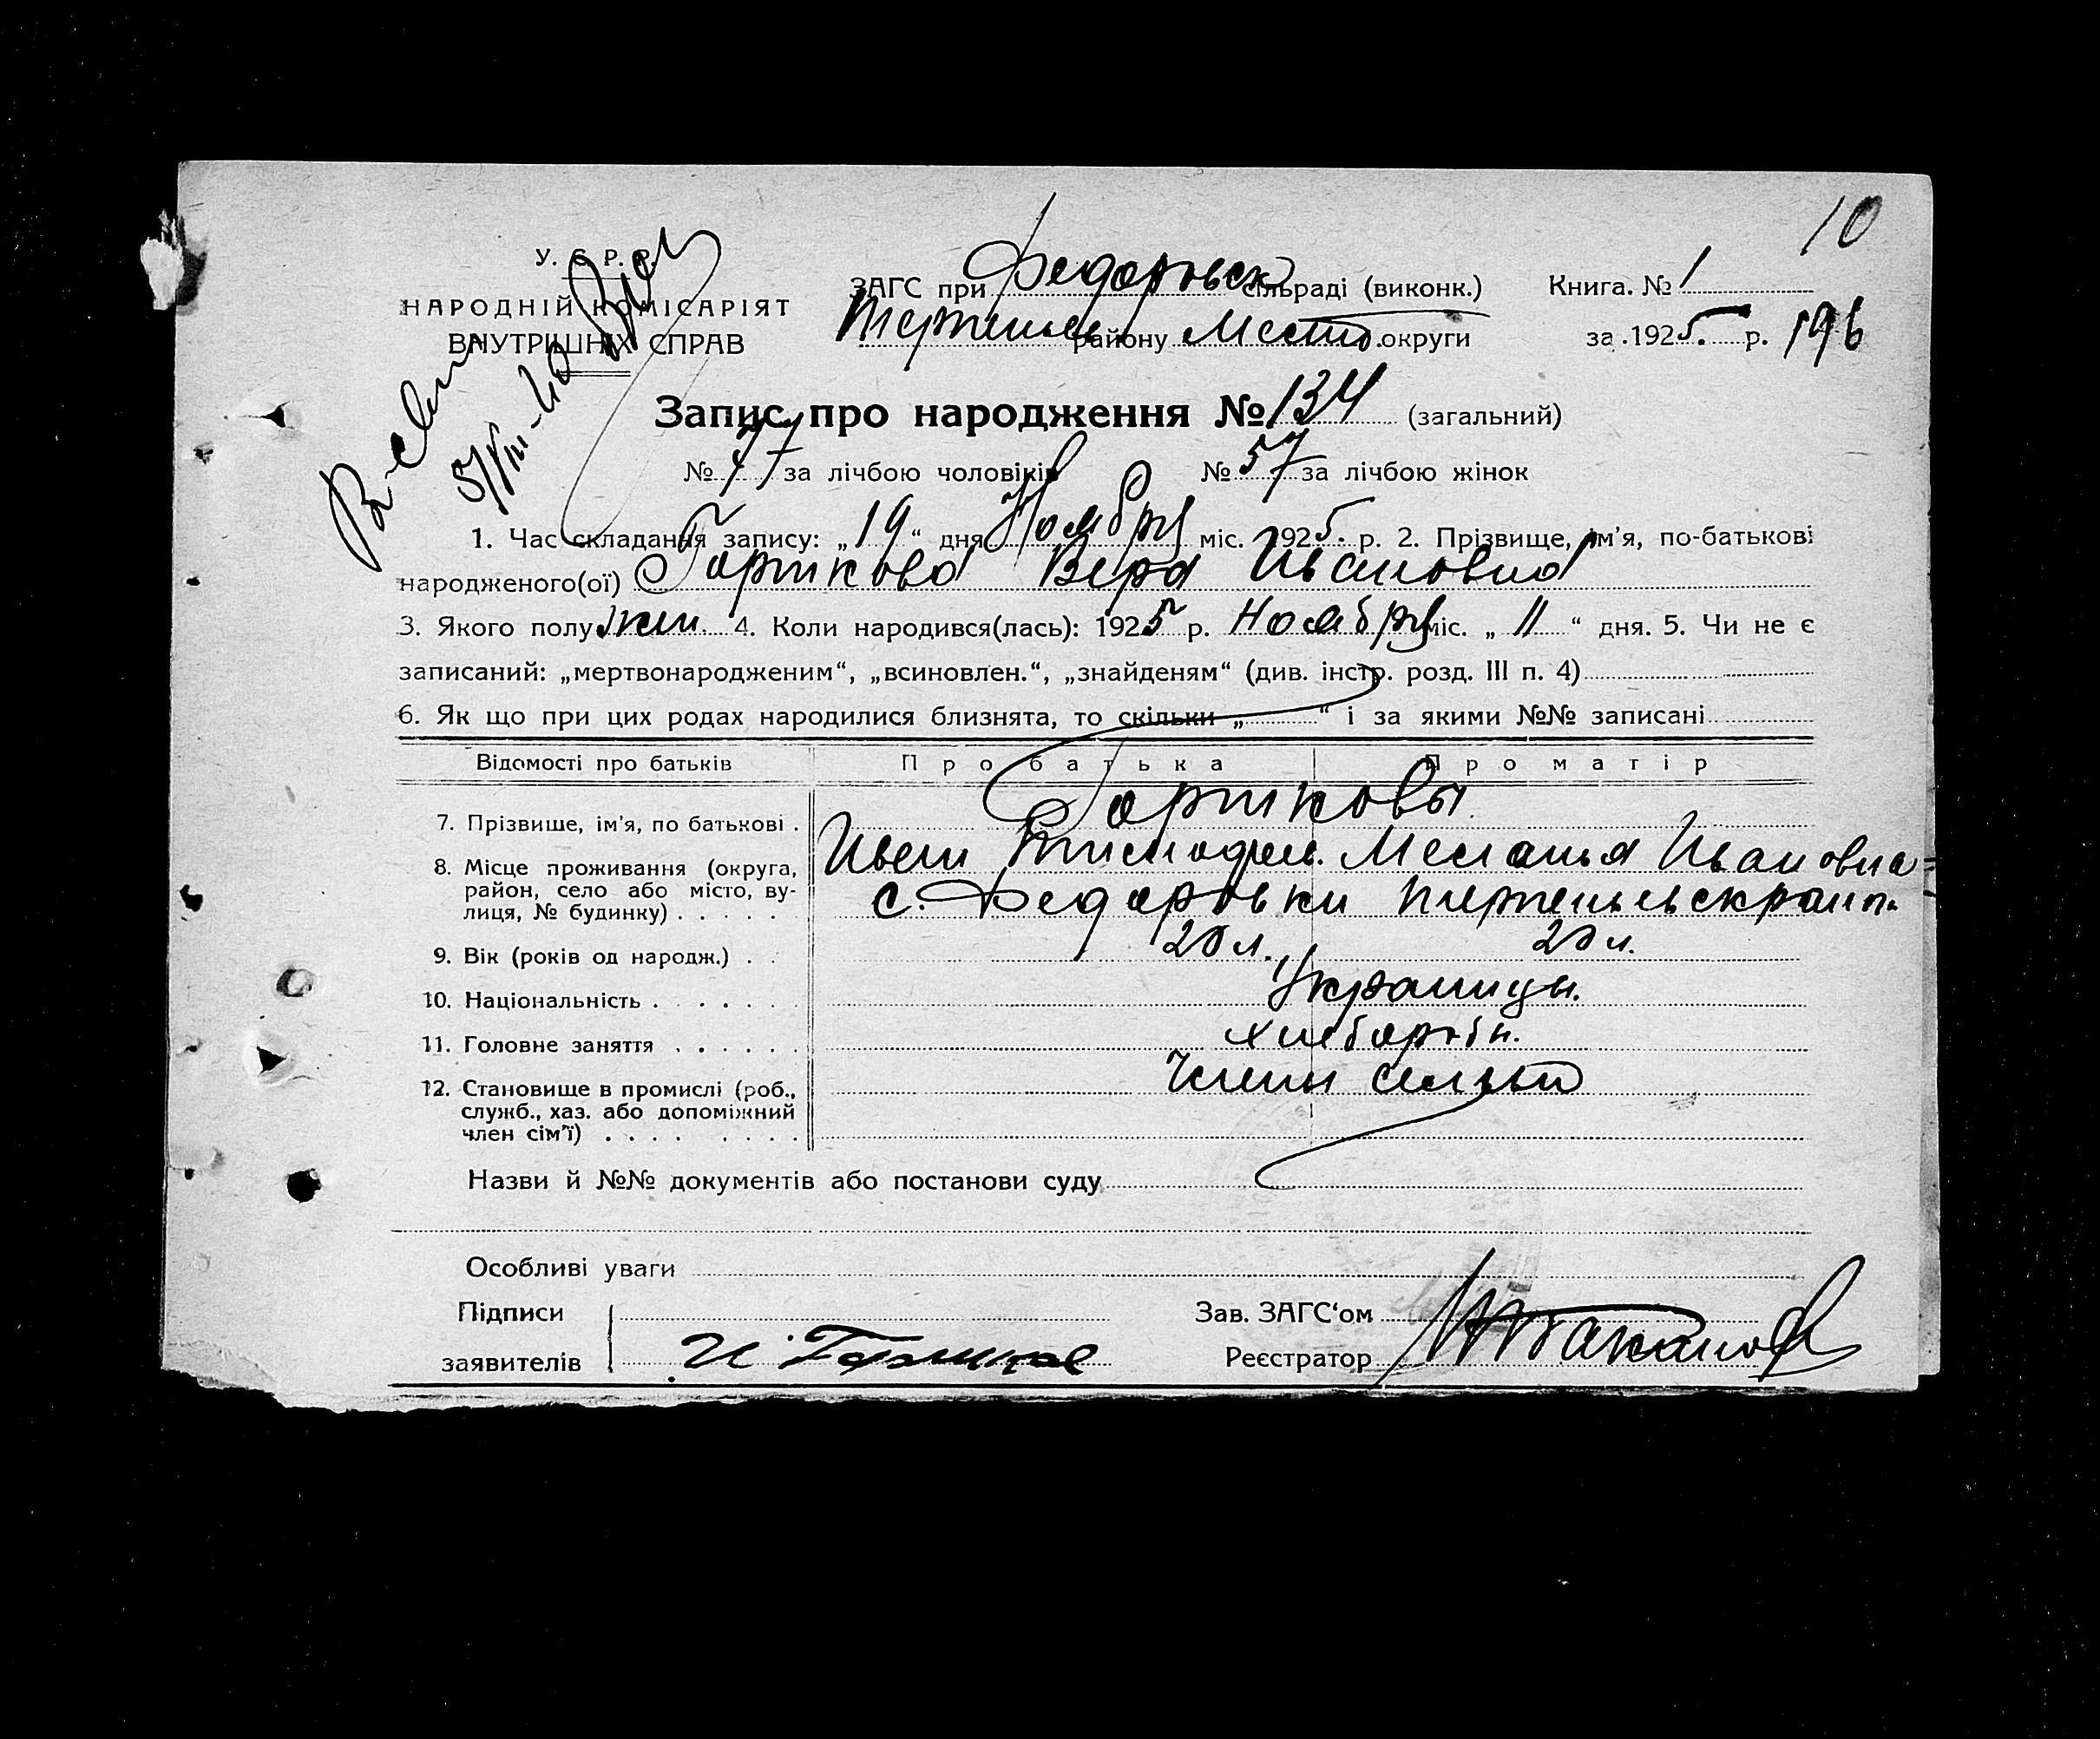 10
У. С. Р. Р.
НАРОДНІЙ КОМІСАРІЯТ
ВНУТРІШНІХ СПРАВ
ЗАГС при Федоровск сільраді (виконк.)
району округи
Книга. № 1
за 1925 р. 196
Запис про народження № 134 (загальний)
№ 77 за лічбою чоловіків № 57 за лічбою жінок
1. Час складання запису: „19“ дня Ноября міс. 1925. р. 2. Прізвище, ім'я, по-батькові
народженого(ої) Горшкова Вера Ивановна
3. Якого полу жен. 4. Коли народився(лась): 1925 р. Ноября міс. „11“ дня. 5. Чи не є
записаний: „мертвонародженим“, „всиновлен.“, „знайденям“ (див. інстр. розд. III п. 4)
6. Як що при цих родах народилися близнята, то скільки „ “ і за якими №№ записані
Відомості про батьків Про батька Про матір
7. Прізвише, ім'я, по батькові . Горшковы
Иван Меланья Ивановна
8. Місце проживання (округа,
район, село або місто, ву-
лиця, № будинку) . . . . . с. Федоровки
9. Вік (років од народж.) . . 20 л. 20 л.
10. Національність . . . . . . . Украинцы.
11. Головне заняття . . . . . . хлебороб.
12. Становище в промислі (роб.,
служб., хаз. або допоміжний
член сім'ї) . . . . . . . . Члени
Назви й №№ документів або постанови суду
Особливі уваги
Підписи
заявителів И Горшков
Зав. ЗАГС‘ом
Реєстратор